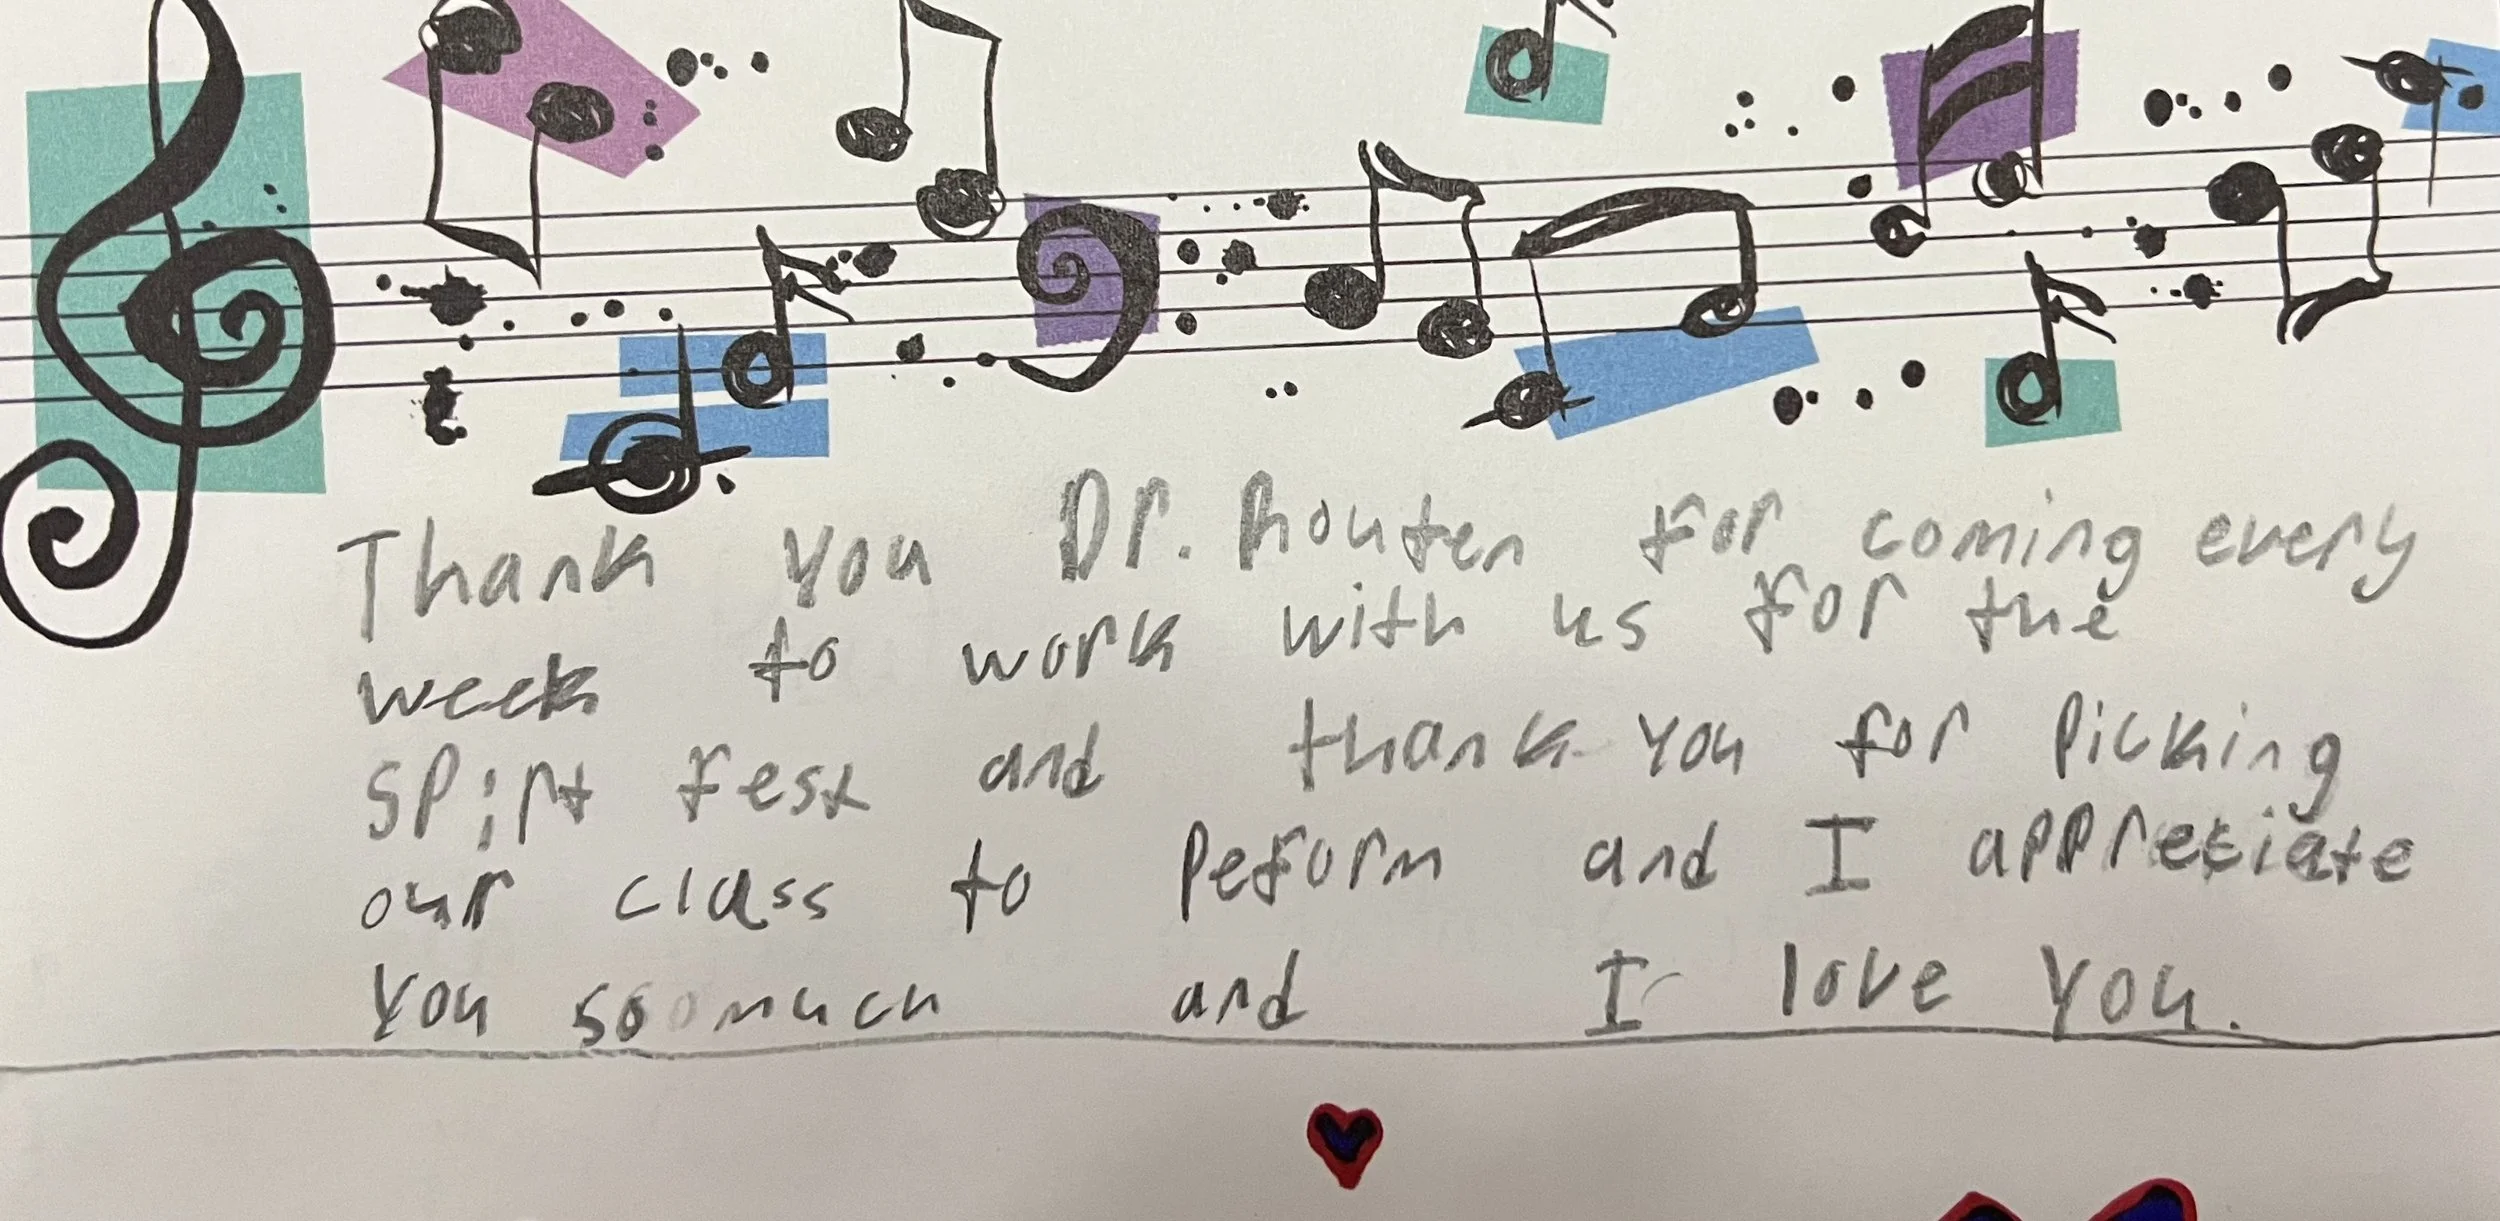 Thank you Dr. Routen for coming every
week to work with us for the
spirt fest and thank you for picking
our class to peform and I appreciate
you so much and I love you.